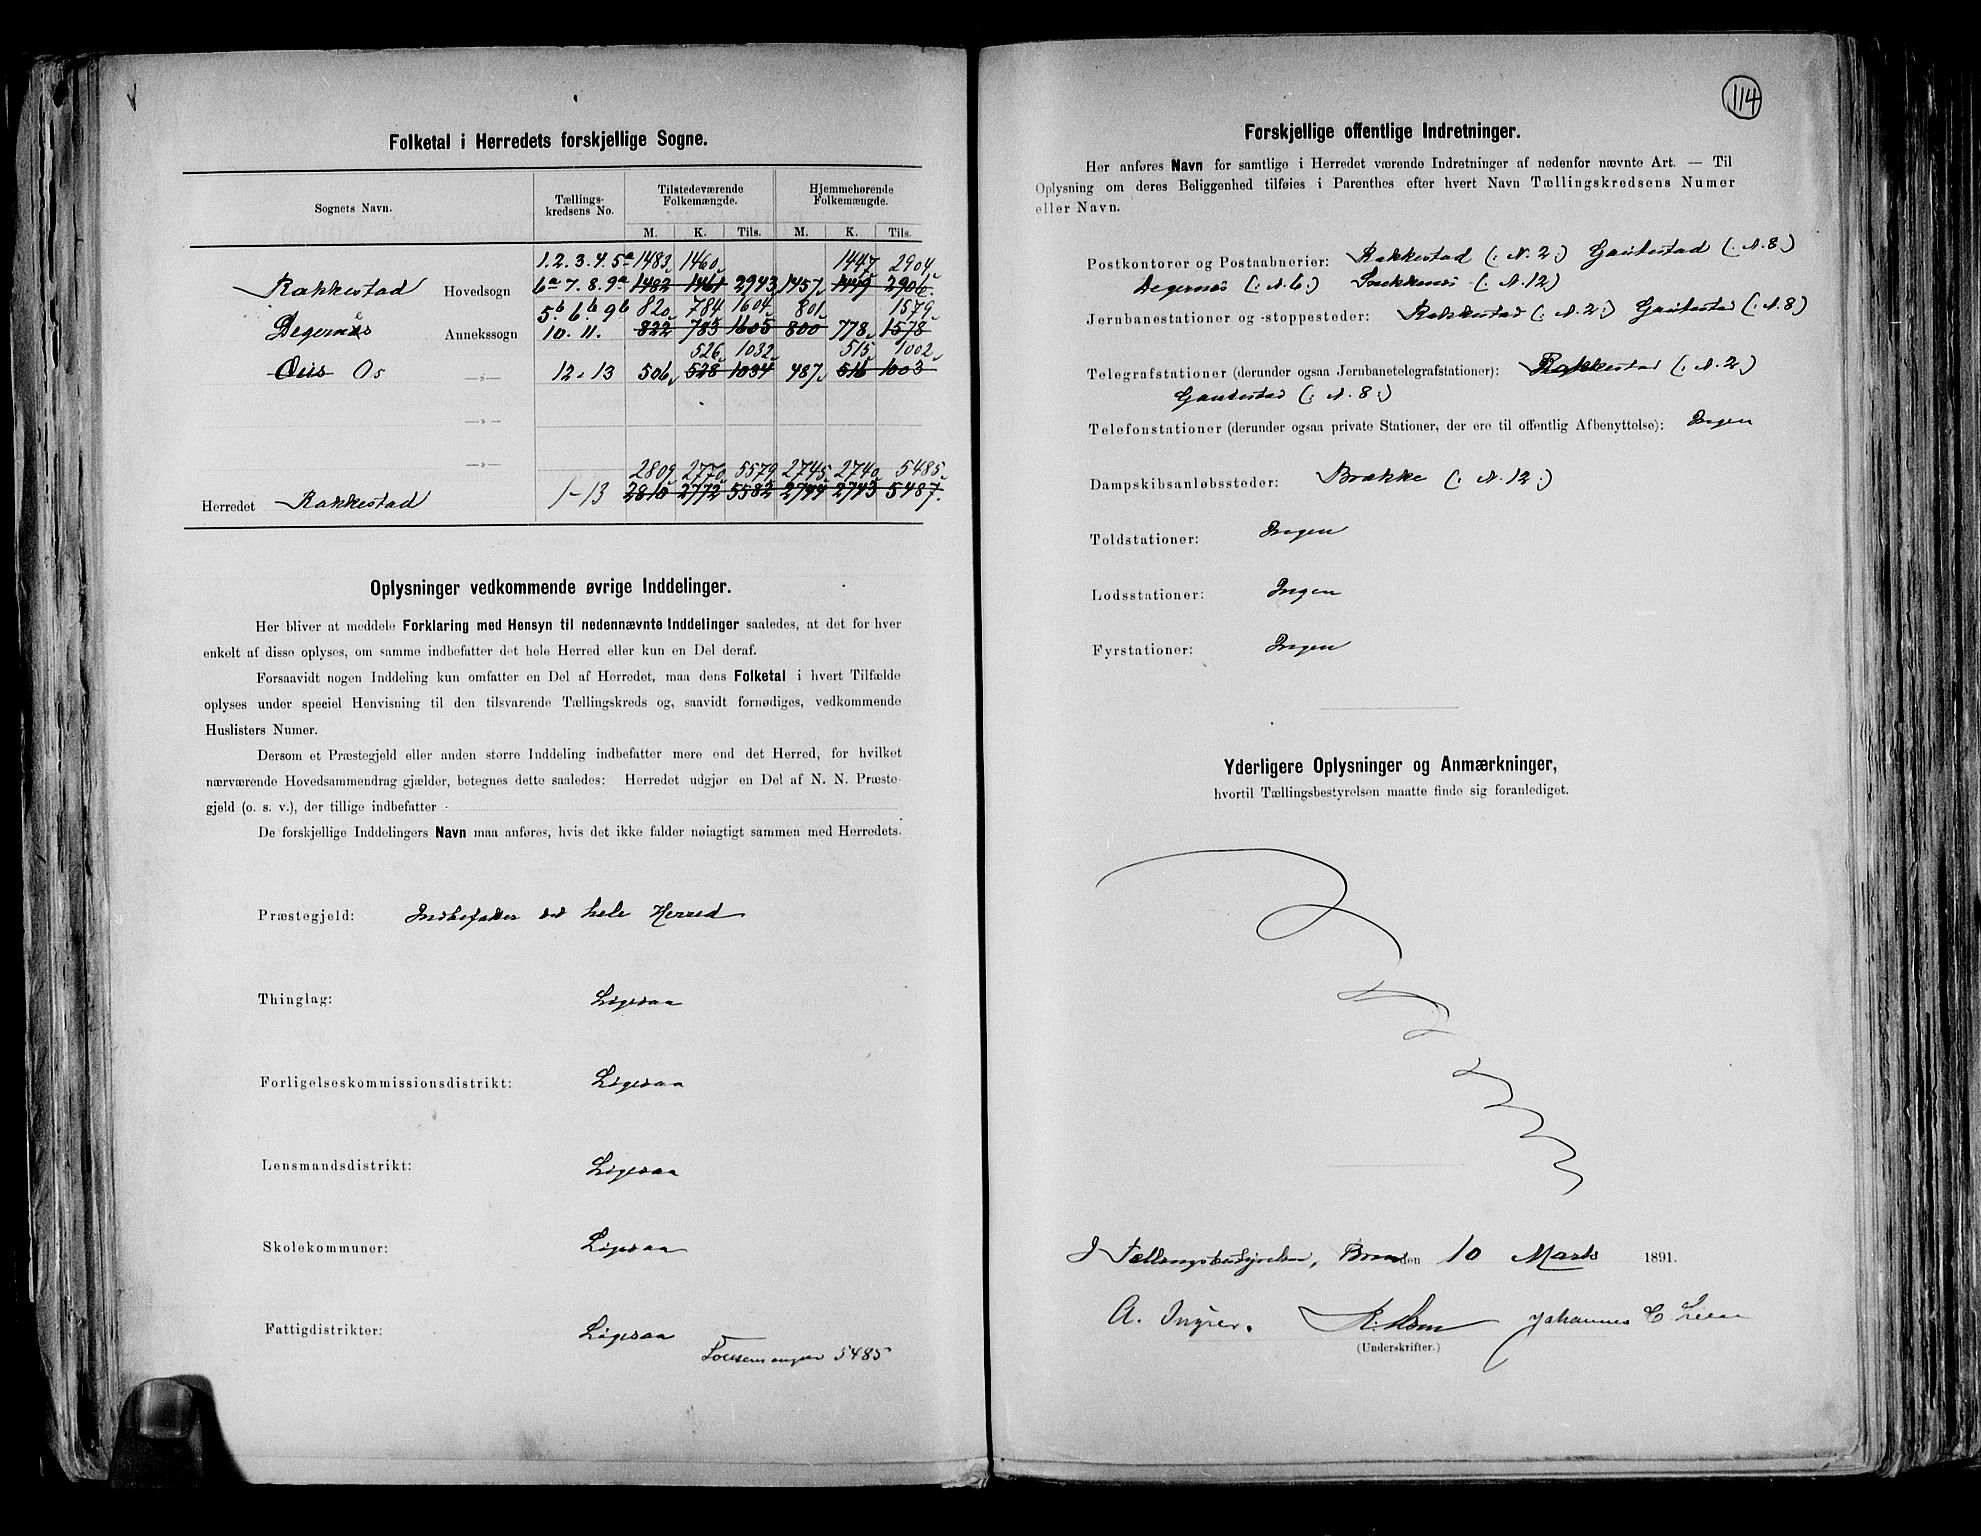 Folketal i Herredets forskjellige Sogne.
Sognets Navn.
Tællings-
kredsens No.
Tilstedeværende
Folkemængde.
Hjemmehørende
Folkemængde.
M. K. Tils. M. K. Tils.
1. 2. 3. 4. 5a 1483 1460 1447 2904
Rakkestad Hovedsogn 6a 7. 8. 9a 1482 1461 2943 1457 1449 2906
5b 6b 9b 820 784 1604 801 1579
Degernæs Annekssogn 10. 11. 822 783 1605 800 778 1578
526 1032 515 1002
Os —„— 12-13 506 528 1034 487 516 1003
—„—
—„— 2809 2770 5579 2745 2740 5485
Herredet Rakkestad 1-13 2810 2772 5582 2744 2743 5487.
Oplysninger vedkommende øvrige Inddelinger.
Her bliver at meddele Forklaring med Hensyn til nedennævnte Inddelinger saaledes, at det for hver
enkelt af disse oplyses, om samme indbefatter det hele Herred eller kun en Del deraf.
Forsaavidt nogen Inddeling kun omfatter en Del af Herredet, maa dens Folketal i hvert Tilfælde
oplyses under speciel Henvisning til den tilsvarende Tællingskreds og, saavidt fornødiges, vedkommende
Huslisters Numer.
Dersom et Præstegjeld eller anden større Inddeling indbefatter mere end det Herred, for hvilket
nærværende Hovedsammendrag gjælder, betegnes dette saaledes: Herredet udgjør en Del af N. N. Præste-
gjeld (o. s. v.), der tillige indbefatter
De forskjellige Inddelingers Navn maa anføres, hvis det ikke falder nøiagtigt sammen med Herredets.
Præstegjeld: Indbefatter det hele Herred
Thinglag: Ligesaa
Forligelseskommissionsdistrikt: Ligesaa
Lensmandsdistrikt: Ligesaa
Skolekommuner: Ligesaa
Fattigdistrikter: Ligesaa
5485
114
Forskjellige offentlige Indretninger.
Her anføres Navn for samtlige i Herredet værende Indretninger af nedenfor nævnte Art. — Til
Oplysning om deres Beliggenhed tilføies i Parenthes efter hvert Navn Tællingskredsens Numer
eller Navn.
Postkontorer og Postaabnerier: Rakkestad (: N. 2:) Gautestad (: N. 8:)
Degernæs (: N. 6:) (: N. 12:)
Jernbanestationer og -stoppesteder: Rakkestad (: N. 2:) Gautestad (: N. 8:)
Telegrafstationer (derunder ogsaa Jernbanetelegrafstationer): Rakkestad (: N. 2:)
Gautestad (: N. 8:)
Telefonstationer (derunder ogsaa private Stationer, der ere til offentlig Afbenyttelse): Ingen
Dampskibsanløbssteder: Brække (: N. 12:)
Toldstationer: Ingen
Lodsstationer: Ingen
Fyrstationer: Ingen
Yderligere Oplysninger og Anmærkninger,
hvortil Tællingsbestyrelsen maatte finde sig foranlediget.
I Tællingsbestyrelsen, den 10 Marts 1891.
A. Johannes C.
(Underskrifter.)